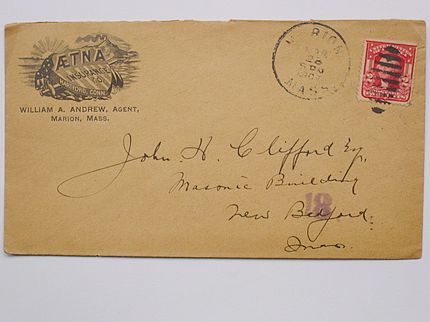 ÆTNA
INSURANCE
CO.
HARTFORD, CONN.
WILLIAM A. ANDREW, AGENT,
MARION, MASS.
MASS.
2
John H. Clifford Esq.
Masonic Building
New Bedford
Mass.
18